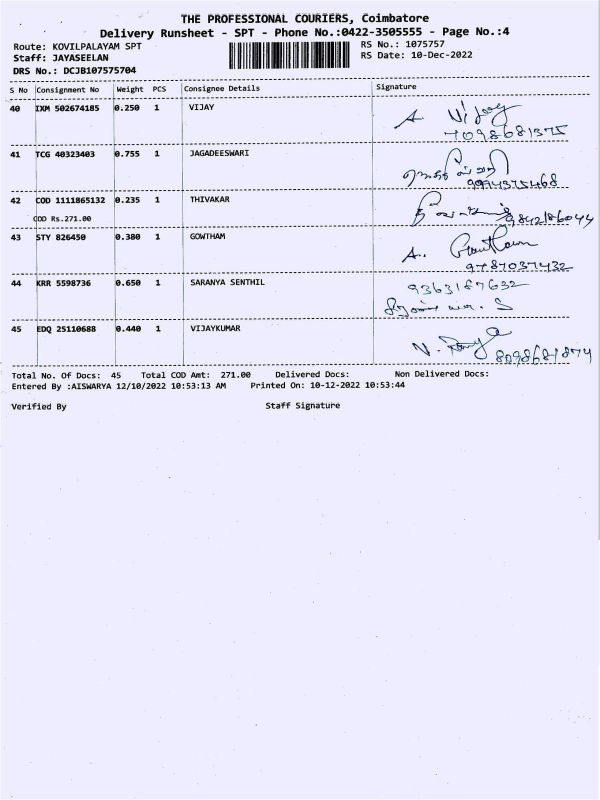 THE PROFESSIONAL COURIERS, Coimbatore
Delivery Runsheet - SPT - Phone No.:0422-3505555 - Page No.:4
Route: KOVILPALAYAM SPT
RS No.: 1075757
Staff: JAYASEELAN
RS Date: 10-Dec-2022
DRS No.: DCJB107575704
S No Consignment No Weight PCS Consignee Details Signature
40 IXM 502674185 0.250 1 VIJAY A. Vijay
7098681375
41 TCG 40323403 0.755 1 JAGADEESWARI
9994375468
42 COD 1111865132 0.235 1 THIVAKAR
COD Rs.271.00 9842186044
43 STY 826450 0.380 1 GOWTHAM A. Gowtham
9787037432
44 KRR 5598736 0.650 1 SARANYA SENTHIL 9363187632
45 EDQ 25110688 0.440 1 VIJAYKUMAR
8098681874
Total No. Of Docs: 45 Total COD Amt: 271.00 Delivered Docs: Non Delivered Docs:
Entered By :AISWARYA 12/10/2022 10:53:13 AM Printed On: 10-12-2022 10:53:44
Verified By Staff Signature